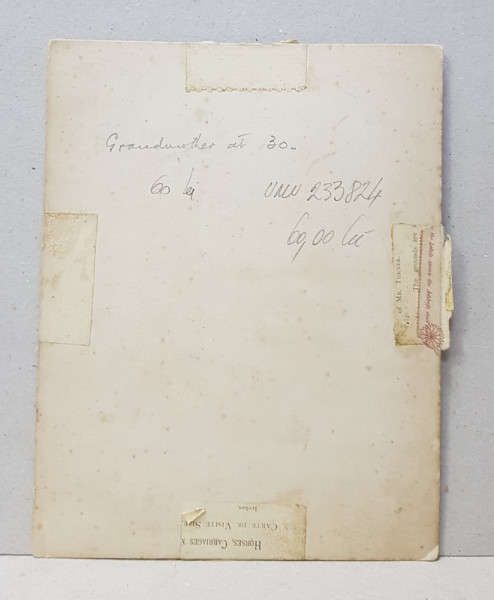 Grandmother at 30-
60 lei UNU 233824
60,00 lei
of Mr. Turner.
Horses, Carriages
Carte de Visite
Inches.